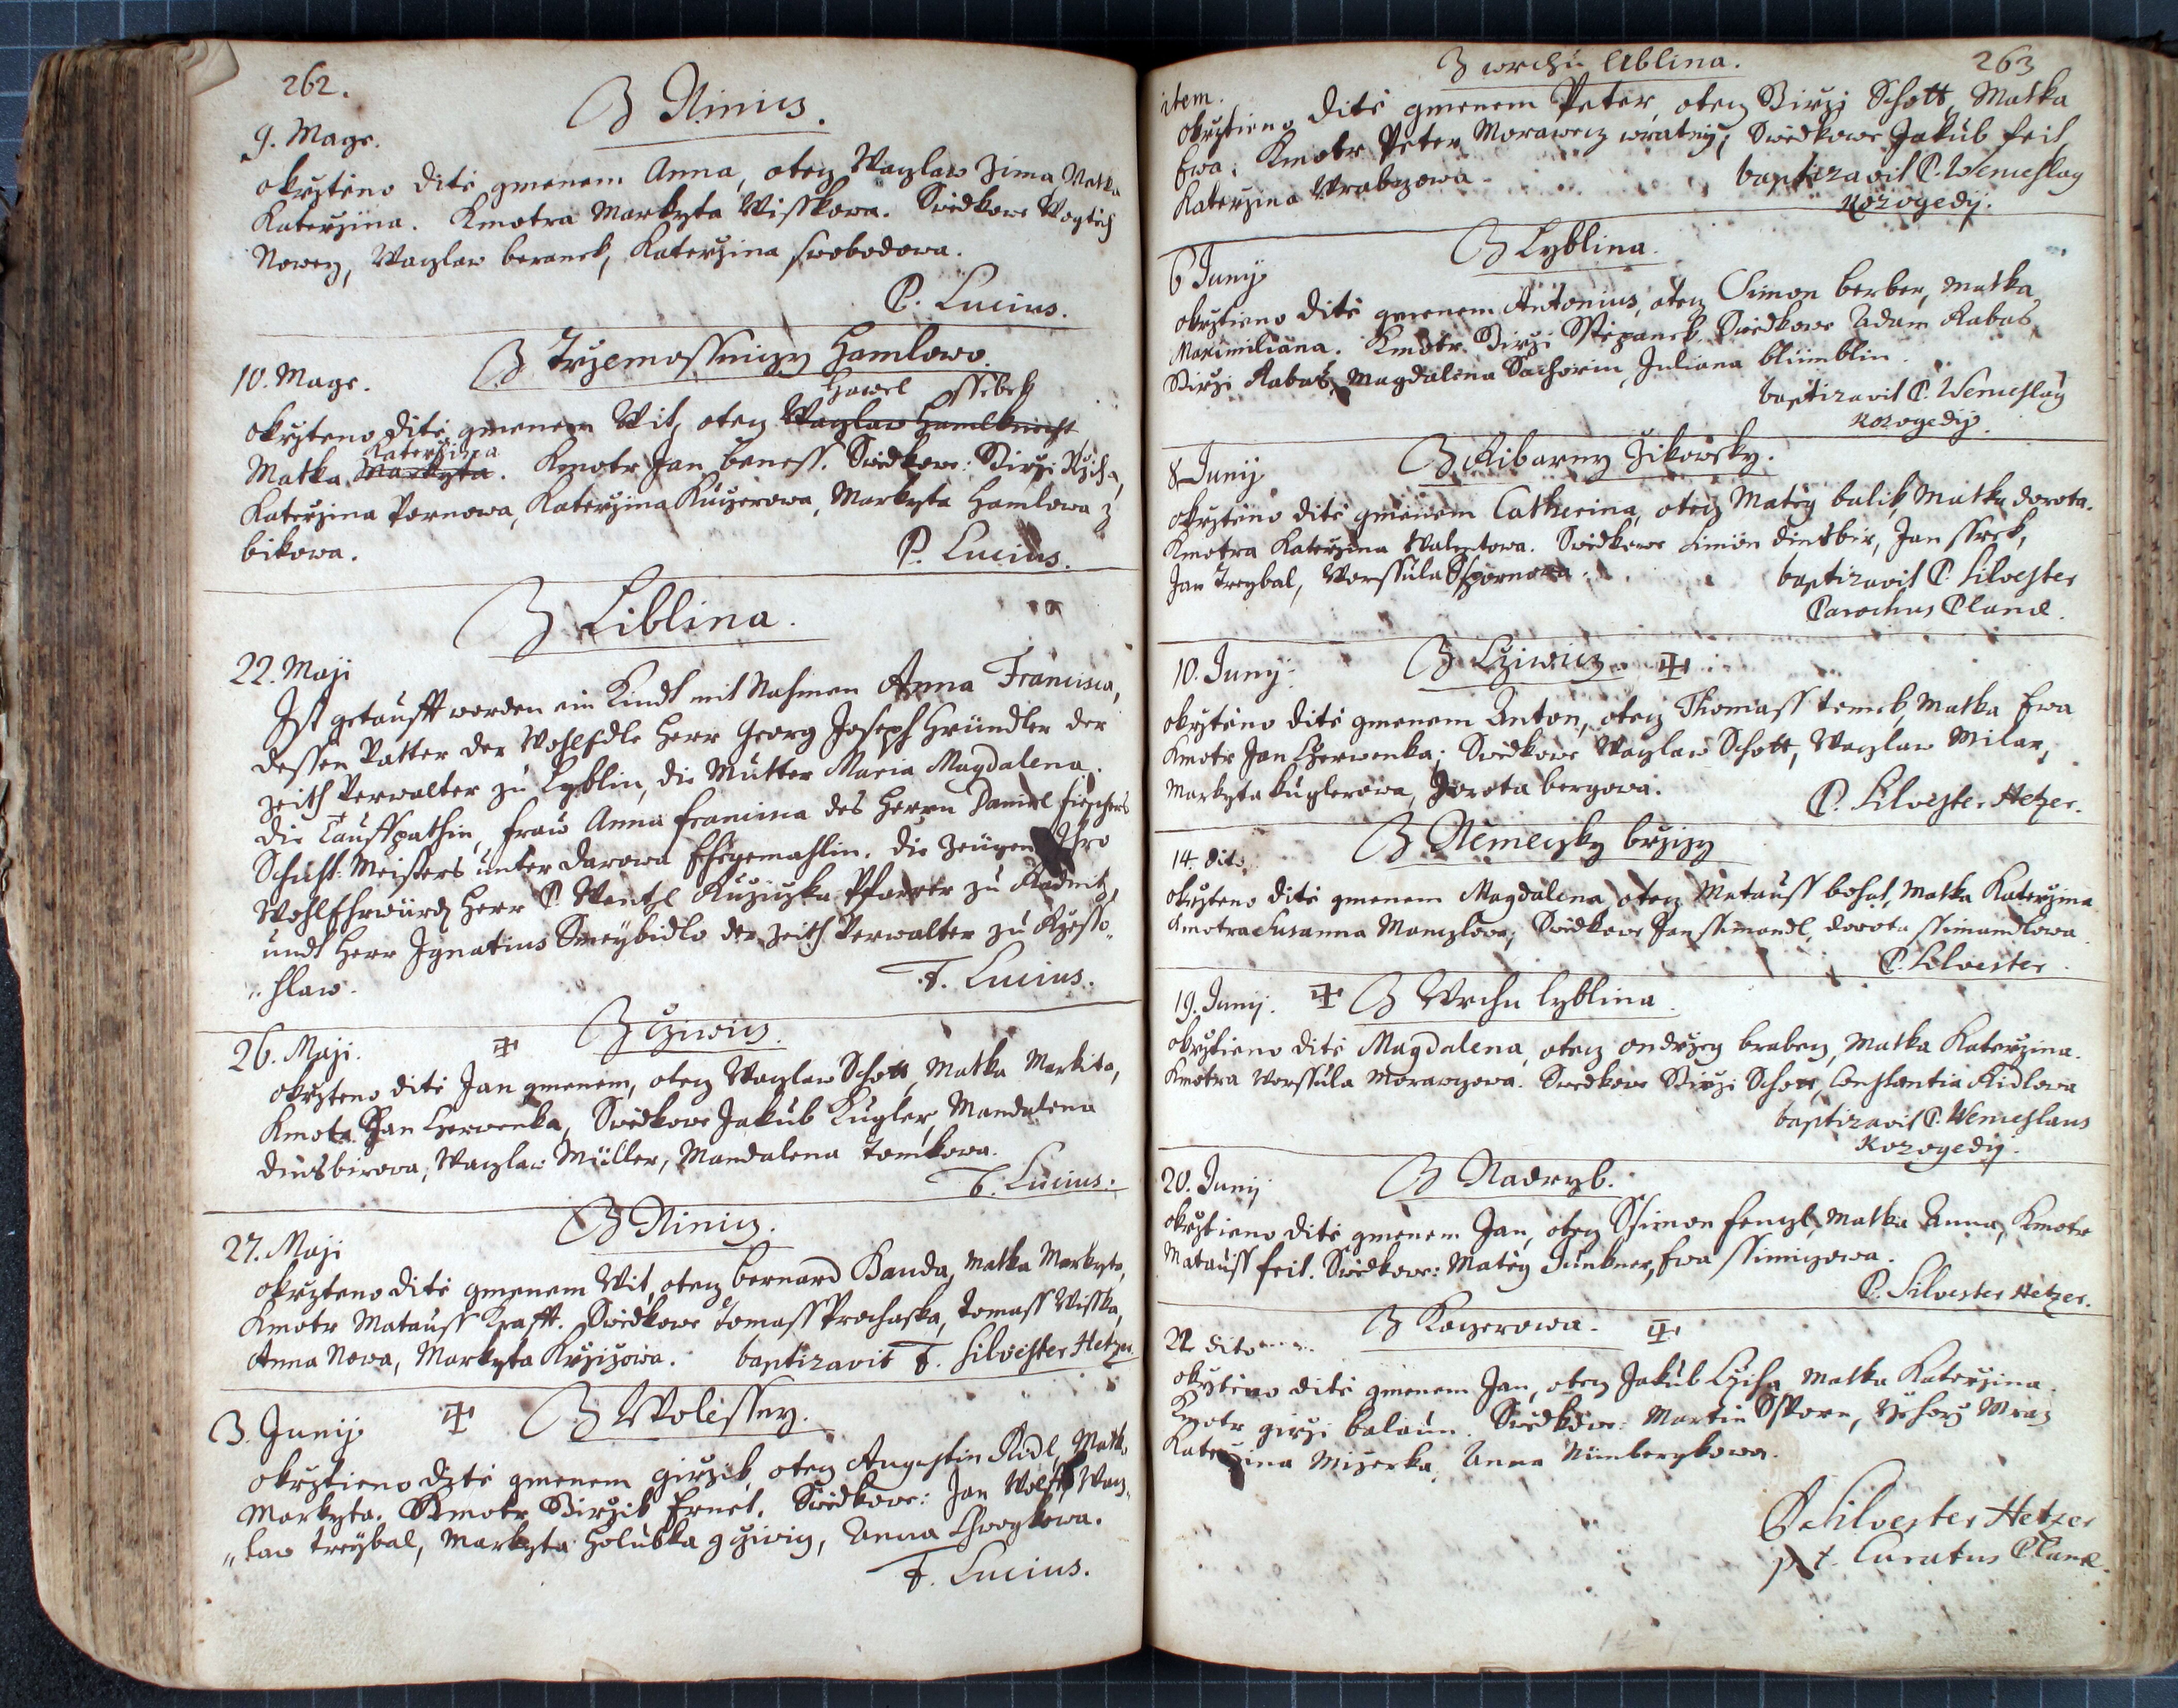 262.
Z Ninicz.
9. Mage.
okrztěno ditě gmenem Anna, otecz Waczlaw Zima, Matka
Katerzina. Kmotra Markyta Wisskowa. Swědkowe Wogtěch
Nowey, Waczlaw beranek, Katerzina swobodowa.
P. Lucius.
Z Trzemossniczy Hamlowo.
10. Mage.
Hawel ssebek
okrzteno ditě gmenem Wit, otecz Waczlaw Hamlknecht
Katerzina
Matka Markyta. Kmotr Jan beness. Swědkowe: Birzi
Katerzina Pornowa, Katerzina Kuczerowa, Markyta Hamlowa z
bikowa.
P. Lucius.
Z Liblina.
22. Maji
Ist getaufft worden ein Kindt mit Nahmen Anna Francisca,
dessen Vatter der WohlEdle Herr Georg Joseph Gründler der
zeith Verwalter zu Lyblin, die Mutter Maria Magdalena.
die Tauffpathin, fraw Anna francisca des Herrn Daniel fischers
Schicht-Meisters unter darowa Ehegemahlin. die Zeugen Ihro
WohlEhrwürd Herr P. Wentzl Ruziczka Pfarrer zu Radnitz,
undt Herr Ignatius Smeybidlo der zeith Verwalter zu Krzesso„
„hlaw.
F. Lucius.
Z Cziwicz.
26. Maji.
okrzteno ditě Jan gmenem, otecz Waczlaw Schott, Matka Markita,
Kmotr Jan Czerwenka, Swědkowe Jakub Kugler, Mandalena
dinsbirowa, Waczlaw Müller, Mandalena Tomkowa.
F. Lucius.
Z Ninicz.
27. Maji
okrzteno ditě gmenem Wit, otecz bernard Banda, Matka Markyta,
Kmotr Matauss Krafft. Swědkowe Tomass Prochaska, Tomass Wisska,
Anna Nowa, Markyta Krzizowa. baptizavit F. Silvester Hetzer
Z Wolessny.
3. Junij
okrztieno ditě gmenem girzik, otecz Augustin Ridl, Matka
Markyta. Kmotr Birzik Ernet. Swědkowe: Jan Wolf, Wacz„
„law treybal, Markyta Holubka z cziwicz, Anna
F. Lucius.
263
Z wrchu Liblina.
item.
okrztieno ditě gmenem Peter, otecz Birzi Schott, Matka
Ewa. Kmotr Peter Morawecz wratny, Swědkowe Jakub feit,
Katerzina Wrabczowa.
baptizavit P. Wenceslag
Kozogedij.
Z Lyblina.
6 Junij
okrztieno ditě gmenem Antonius, otecz Simon berber, Matka
Maximiliana. Kmotr Birzi Sstěpanek. Swědkowe Adam Rabas,
Birzi Rabas, Magdalena Sachorin, Juliana blümblin.
baptizavit P. Wenceslag
Kozogedij.
Z Ribarny Zikowsky.
8 Junij
okrztěno ditě gmenem Catherina, otecz Matěg balik, Matka dorota.
Kmotra Katerzina Walentowa. Swědkowe Simon dinsbir, Jan ssrek,
Jan Treybal, Worssula Sspornowa.
baptizavit P. Silvester
Parochus Pland.
Z Cziwicz.
10. Junij.
okrztěno ditě gmenem Anton, otecz Thomass tomek, Matka Ewa
Kmotr Jan Czerwenka; Swědkowe Waczlaw Schott, Waczlaw Milar,
Markyta kuglerowa, Dorota bergowa.
P. Silvester Hetzer.
Z Nemeczky brzizy
14. dito
okrzteno ditě gmenem Magdalena, otecz Matauss bohat, Matka Katerzina
Kmotra Susanna Manczlowa, Swědkowe Jan ssimandl, dorota ssimandlowa.
P. Silvester.
Z Wrchu lyblina.
19. Junij.
okrztieno ditě Magdalena, otecz ondrzeg brabecz, Matka Katerzina.
Kmotra Worssula Morawczowa. Swědkowe Birzi Schott, Constantia Ridlowa
baptizavit P. Wenceslaus
Kozogedij.
Z Nadryb.
20. Junij
okrztieno ditě gmenem Jan, otecz Ssimon fenzl, Matka Anna, Kmotr
Matauss feit. Swědkowe: Matěg Junkner, Ewa ssimiczowa.
P. Silvester Hetzer.
Z Kaczerowa.
21. dito
okrztěno ditě gmenem Jan, otecz Jakub Matka Katerzina.
Kmotr girzi balaun. Swědkowe: Martin Ssporn, Mraz
Katerzina Mizerka, Anna Nimbergkowa.
P. Silvester Hetzer
p. t. Curatus Pland.